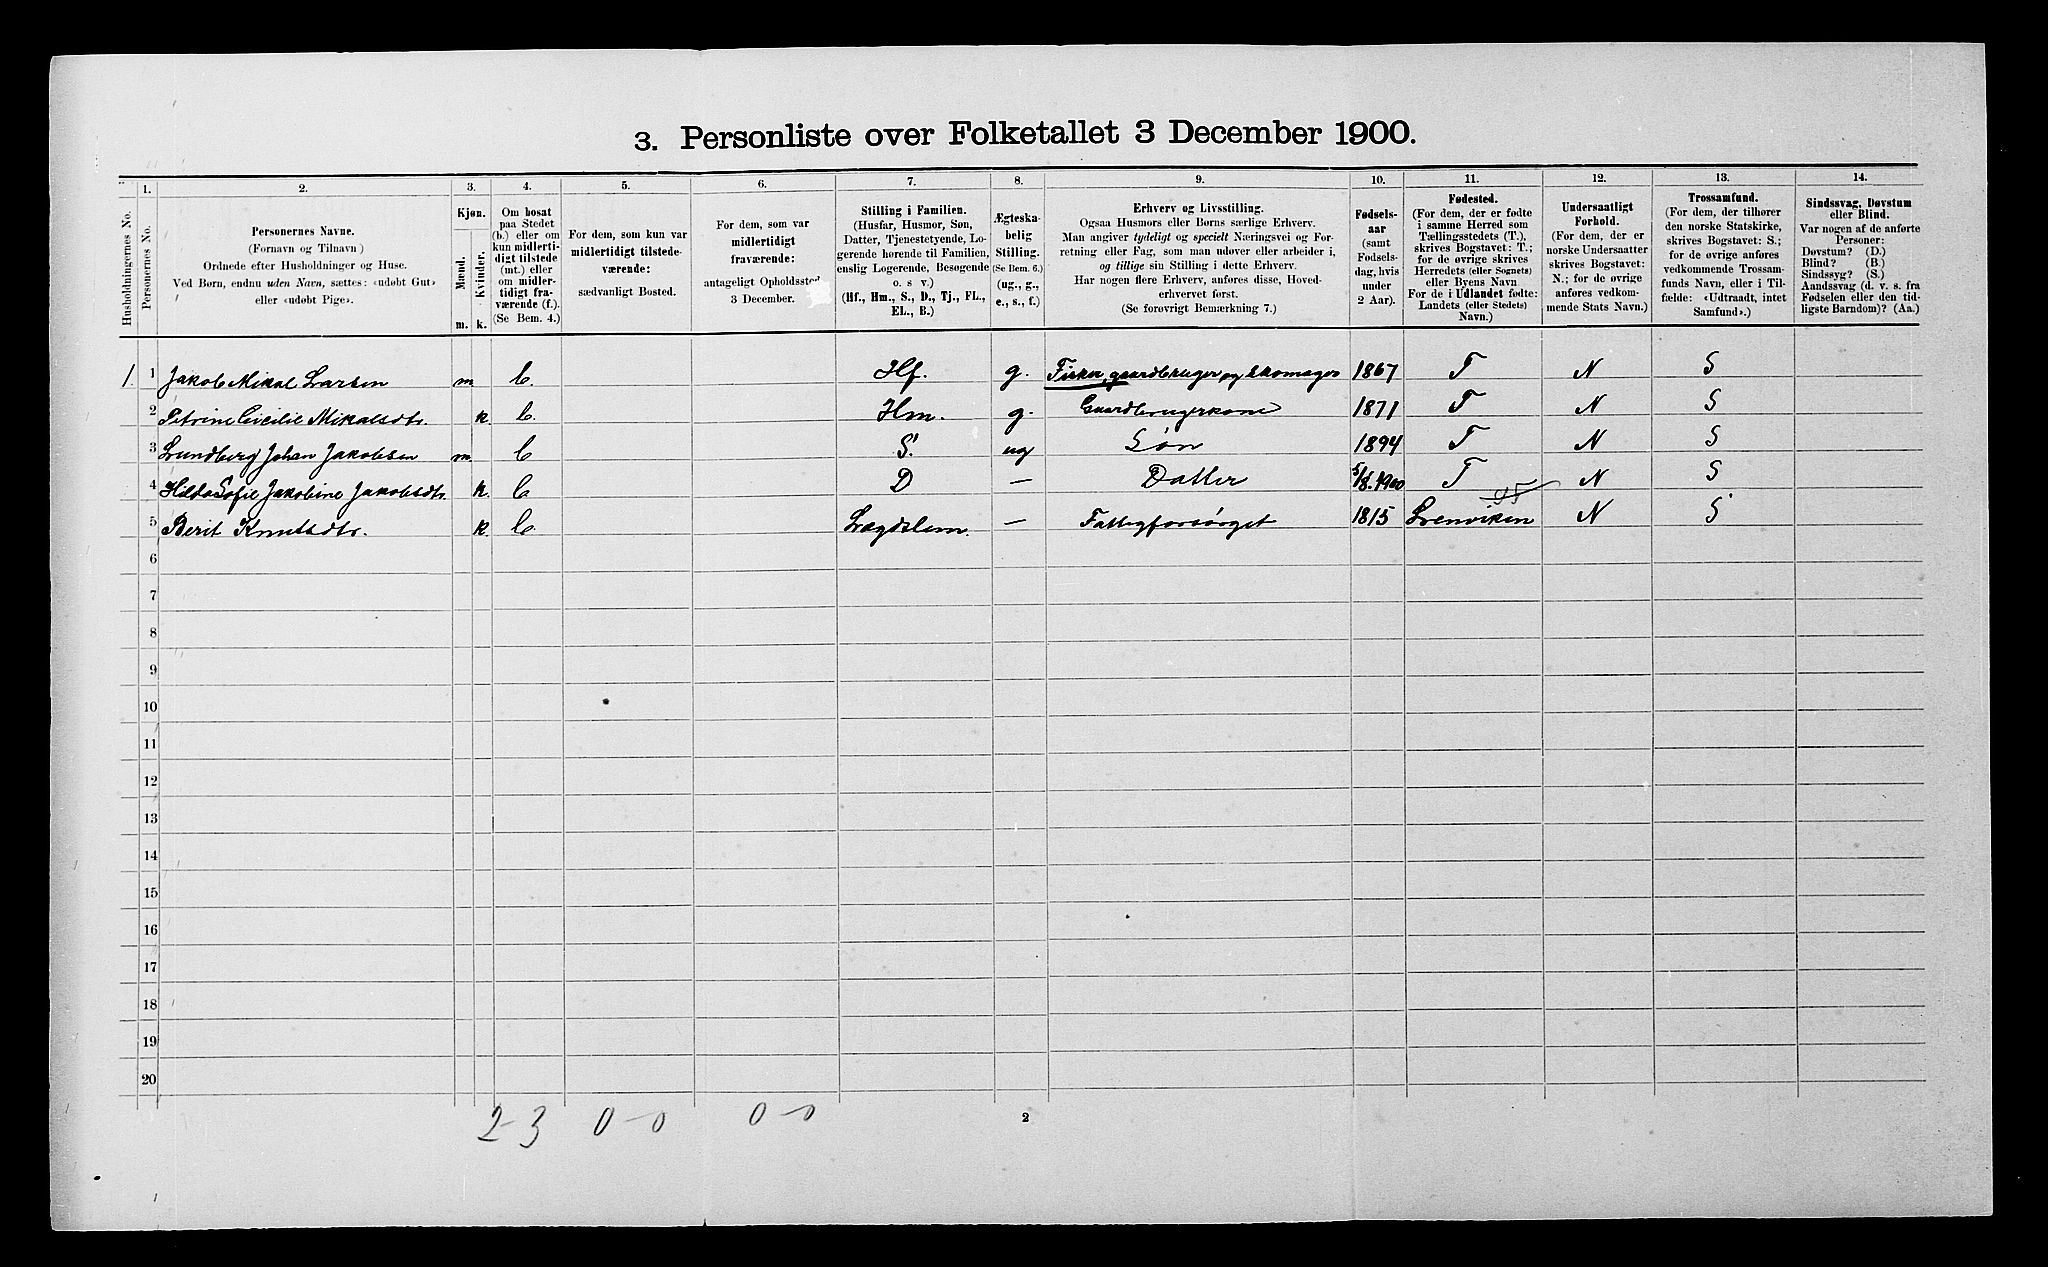 3. Personliste over Folketallet 3 December 1900.
1. 2. 3. 4. 5. 6. 7. 8. 9. 10. 11. 12. 13. 14.
Husholdningernes No.
Personernes No.
Personernes Navne.
(Fornavn og Tilnavn)
Ordnede efter Husholdninger og Huse.
Ved Børn, endnu uden Navn, sættes: «udøbt Gut»
eller «udøbt Pige».
Kjøn.
Mænd. Kvinder.
m. k.
Om bosat
paa Stedet
(b.) eller om
kun midlerti-
digt tilstede
(mt.) eller
om midler-
tidigt fra-
værende (f.).
(Se Bem. 4.)
For dem, som kun var
midlertidigt tilstede-
værende:
sædvanligt Bosted.
For dem, som var
midlertidigt
fraværende:
antageligt Opholdssted
3 December.
Stilling i Familien.
(Husfar, Husmor, Søn,
Datter, Tjenestetyende, Lo-
gerende hørende til Familien,
enslig Logerende, Besøgende
o. s v.)
(Hf., Hm., S., D., Tj., FL.,
EL., B.)
Ægteska-
belig
Stilling.
(Se Bem. 6.)
(ug., g.,
e., s., f.)
Erhverv og Livsstilling.
Ogsaa Husmors eller Børns særlige Erhverv.
Man angiver tydeligt og specielt Næringsvei og For-
retning eller Fag, som man udøver eller arbeider i,
og tillige sin Stilling i dette Erhverv.
Har nogen flere Erhverv, anføres disse, Hoved-
erhvervet først.
(Se forøvrigt Bemærkning 7.)
Fødsels-
aar
(samt
Fødsels-
dag, hvis
under
2 Aar).
Fødested.
(For dem, der er fødte
i samme Herred som
Tællingsstedets (T.),
skrives Bogstavet: T.;
for de øvrige skrives
Herredets (eller Sognets)
eller Byens Navn
For de i Udlandet fødte:
Landets (eller Stedets)
Navn.)
Undersaatligt
Forhold.
(For dem, der er
norske Undersaatter
skrives Bogstavet:
N.; for de øvrige
anføres vedkom-
mende Stats Navn.)
Trossamfund.
(For dem, der tilhører
den norske Statskirke,
skrives Bogstavet: S.;
for de øvrige anføres
vedkommende Trossam-
funds Navn, eller i Til-
fælde: «Udtraadt, intet
Samfund».)
Sindssvag, Døvstum
eller Blind.
Var nogen af de anførte
Personer:
Døvstum? (D.)
Blind? (B.)
Sindssyg? (S.)
Aandssvag (d. v. s. fra
Fødselen eller den tid-
ligste Barndom)? (Aa.)
1. 1 Jakob Mikal Larsen m. b. Hf. g. Fisker, gaardbruger og skomager 1867 T N S
2 Petrine Cecilie Mikalsdtr. k. b. Hm. g. Gaardbrugerkone 1871 T N S
3 Lundberg Johan Jakobsen m. b S. ug Søn 1894 T N S
4 Hilda Sofie Jakobine Jakobsdtr. k. b. D — Datter 5/8.1900 T N S
5 Berit Knutsdtr. k. b. Lægdslem. — Fattigforsørget 1815 Lenviken N S
6
7
8
9
10
11
12
13
14
15
16
17
18
19
20
2-3 0-0 0-0 2